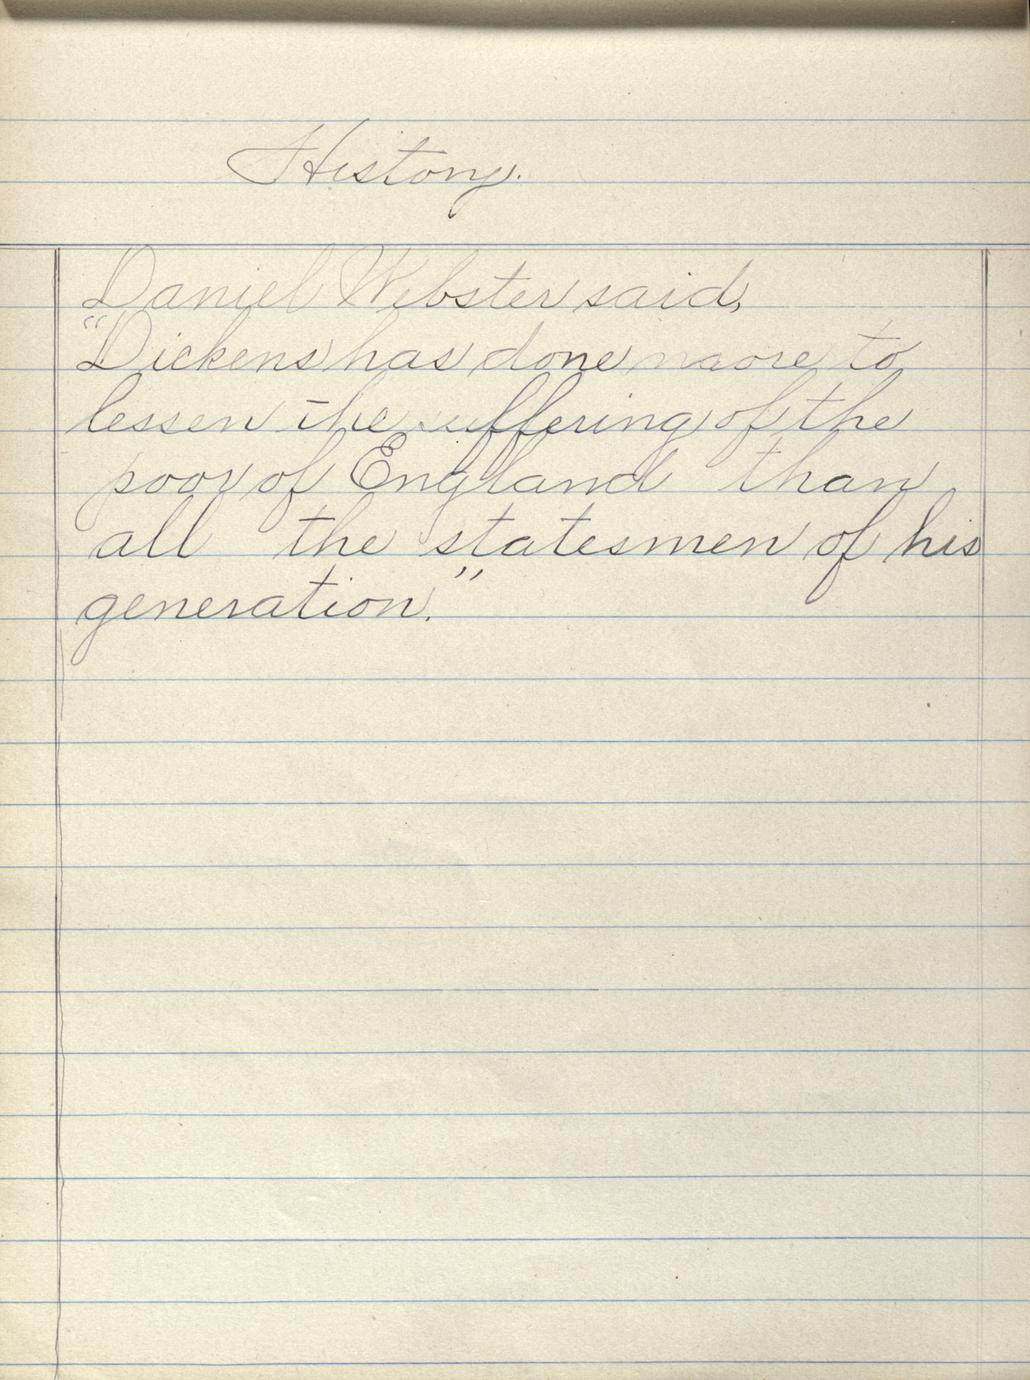 History.
Daniel Webster said,
"Dickens has done more to
lessen the suffering of the
poor of England than
all the statesmen of his
generation."